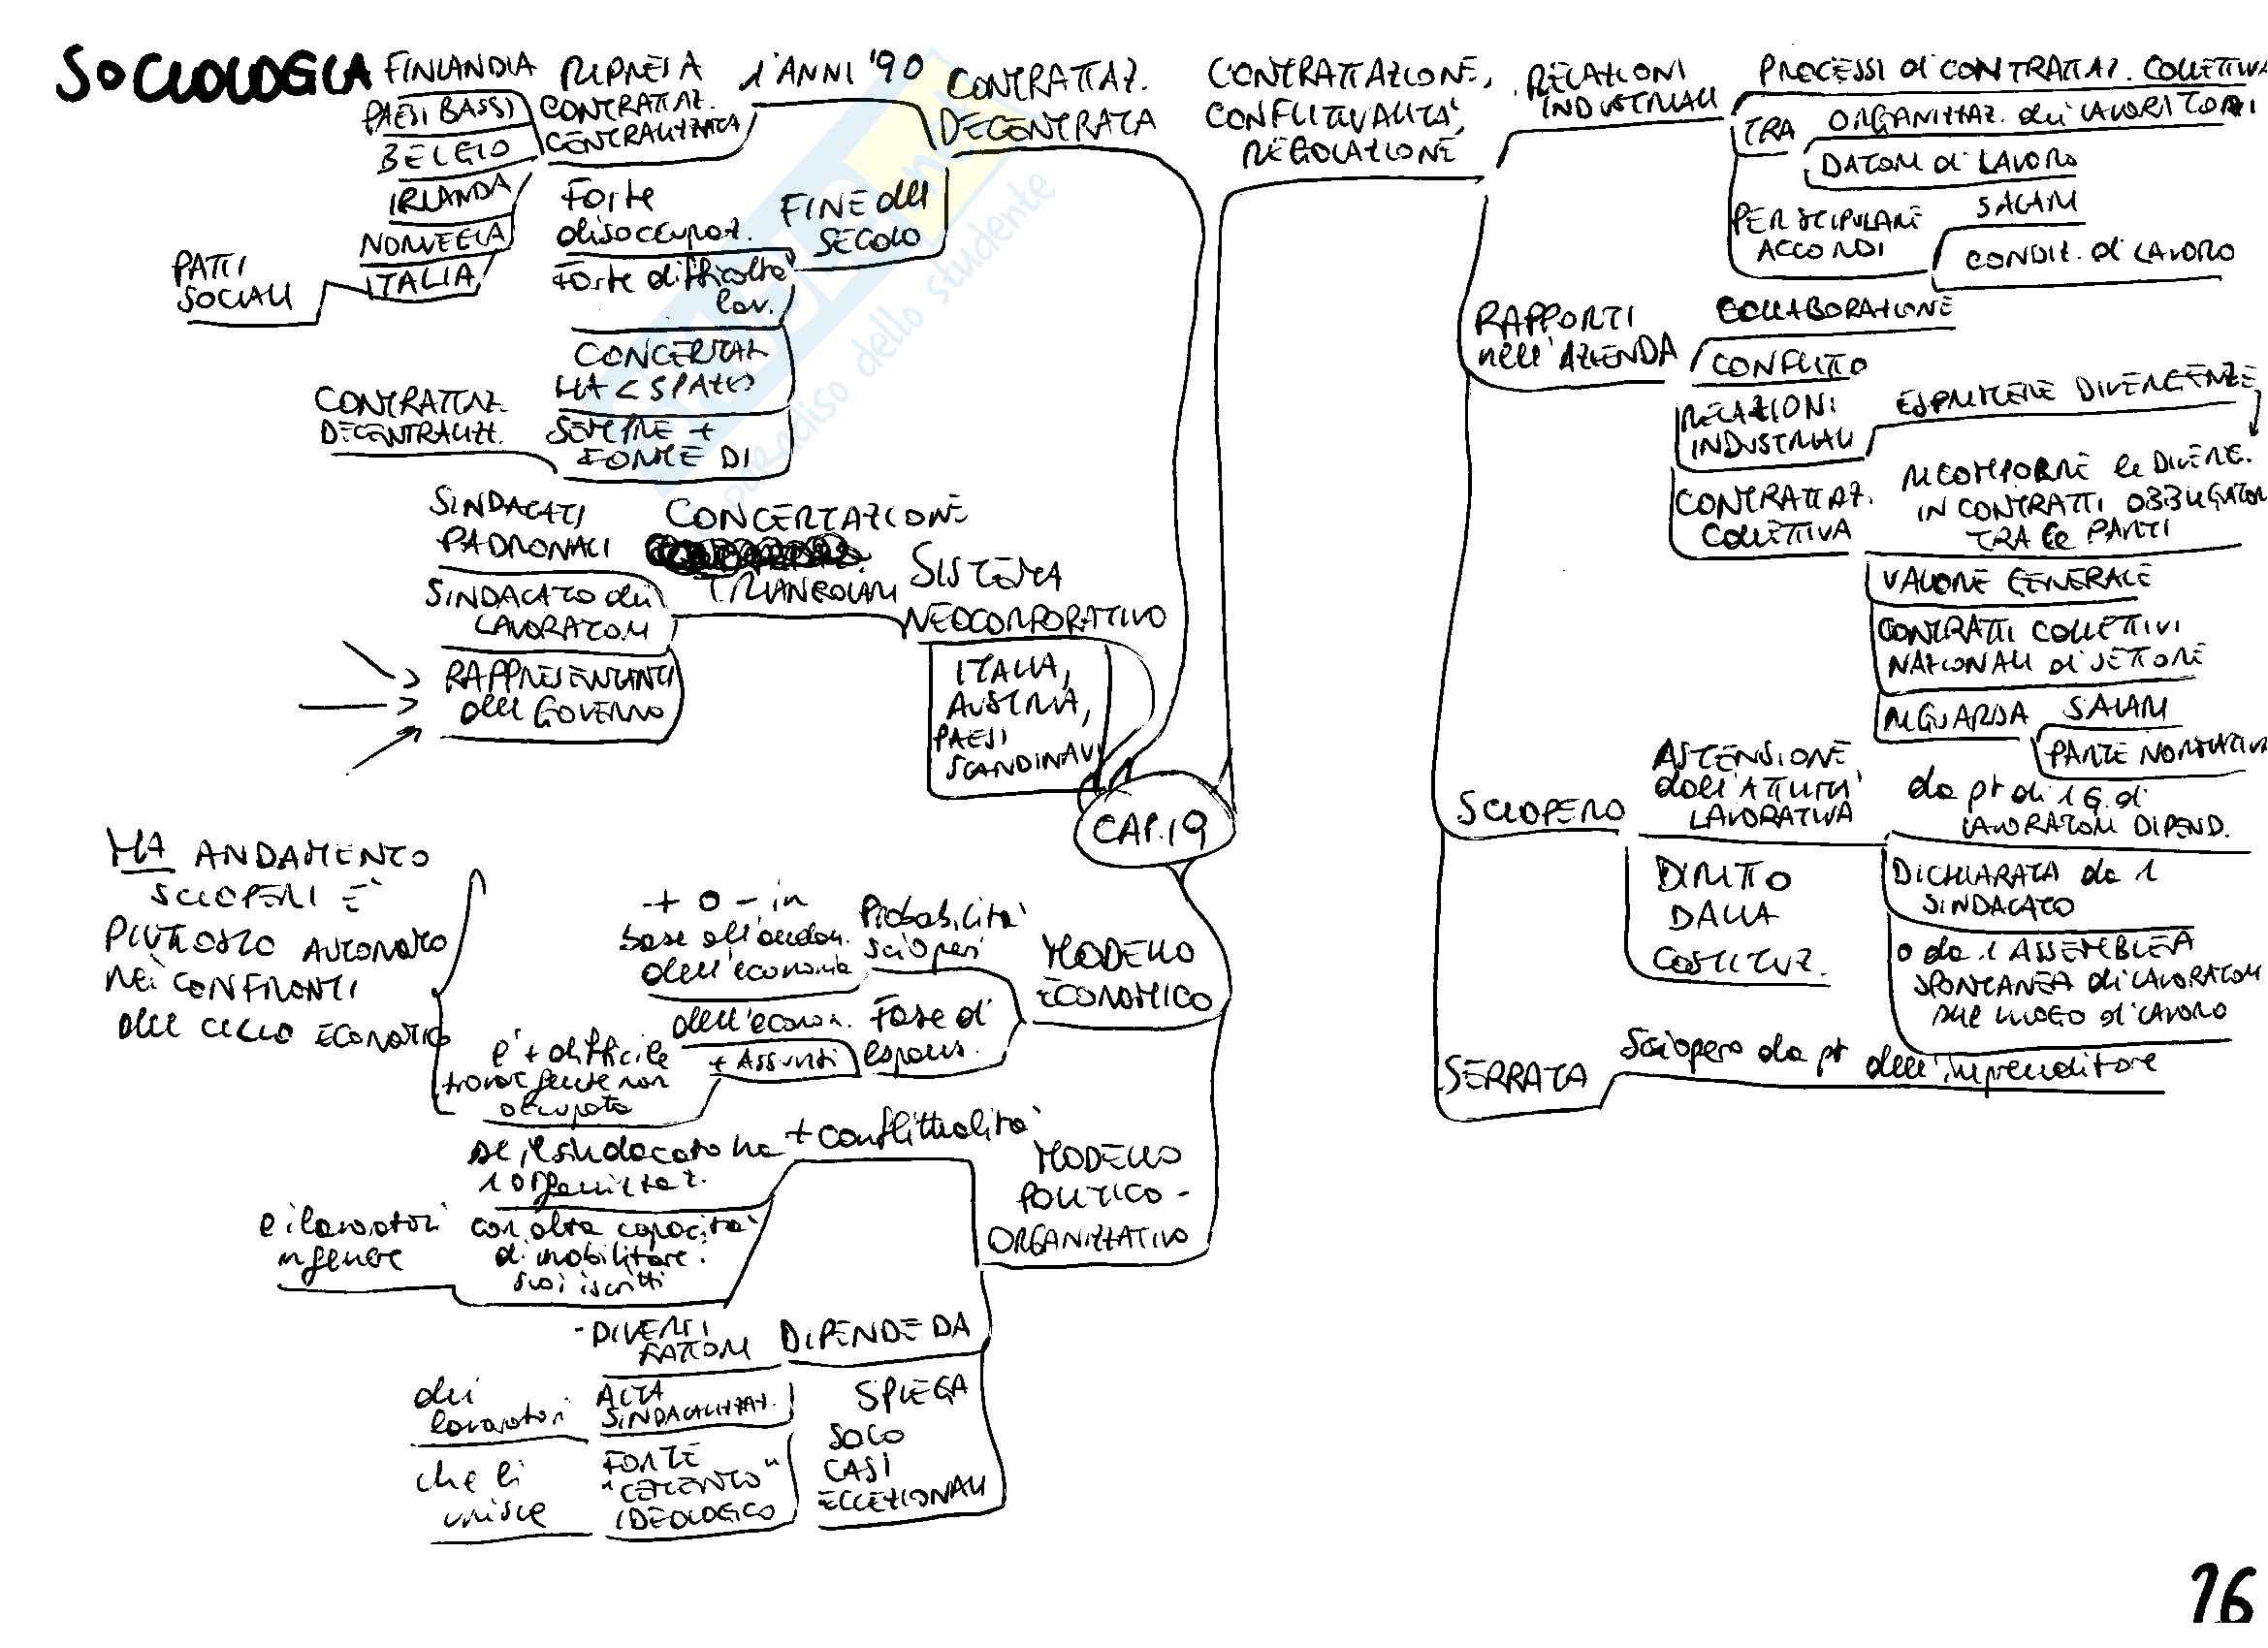 SOCIOLOGIA
FINLANDIA
PAESI BASSI
BELGIO
IRLANDA
NORVEGIA
ITALIA
PATTI
SOCIALI
RIPRESA
CONTRATTAZ.
CENTRALIZZATA
1' ANNI '90
CONTRATTAZ.
DECENTRATA
FINE del
SECOLO
Forte
disoccupaz.
Forte difficoltà
lav.
CONCERTAZ
HA < SPAZIO
SEMPRE +
FORME DI
CONTRATTAZ.
DECENTRALIZZ.
SINDACATI
PADRONALI
SINDACATO dei
LAVORATORI
RAPPRESENTANTI
del GOVERNO
CONCERTAZIONE
TRIANGOLARI
SISTEMA
NEOCORPORATIVO
ITALIA,
AUSTRIA,
PAESI
SCANDINAVI
CAP.19
CONTRATTAZIONE,
CONFLITTUALITÀ,
REGOLAZIONE
RELAZIONI
INDUSTRIALI
PROCESSI di CONTRATTAZ. COLLETTIVA
TRA
ORGANIZZAZ. dei LAVORATORI
DATORI di LAVORO
PER STIPULARE
ACCORDI
SALARI
CONDIZ. di LAVORO
RAPPORTI
nell'AZIENDA
COLLABORAZIONE
CONFLITTO
RELAZIONI
INDUSTRIALI
ESPRIMERE DIVERGENZE
CONTRATTAZ.
COLLETTIVA
RICOMPORRE le DIVERG.
IN CONTRATTI OBBLIGATORI
TRA le PARTI
VALORE GENERALE
CONTRATTI COLLETTIVI
NAZIONALI di SETTORE
RIGUARDA
SALARI
PARTE NORMATIVA
SCIOPERO
ASTENSIONE
dall'ATTIVITÀ
LAVORATIVA
da pt di 1 G. di
LAVORATORI DIPEND.
DICHIARATA da 1
SINDACATO
o da 1 ASSEMBLEA
SPONTANEA di LAVORATORI
sul LUOGO di LAVORO
DIRITTO
DALLA
COSTITUZ.
SERRATA
Sciopero da pt dell'imprenditore
MODELLO
ECONOMICO
Probabilità
scioperi
+ o - in
base all'andam.
dell'economia
Fase di
espans.
dell'econom.
+ ASSUNTI
è + difficile
trovar gente non
occupata
MA ANDAMENTO
SCIOPERI È
PIUTTOSTO AUTONOMO
NEI CONFRONTI
del CICLO ECONOMICO
MODELLO
POLITICO -
ORGANIZZATIVO
+ conflittualità
se il sindacato ha
1 organizzaz.
con alta capacità
di mobilitare i
suoi iscritti
e i lavoratori
in genere
DIPENDE DA
- DIVERSI
FATTORI
ALTA
SINDACALIZZAZ.
dei
lavoratori
FORTE
"CEMENTO"
IDEOLOGICO
che li
unisce
SPIEGA
SOLO
CASI
ECCEZIONALI
16